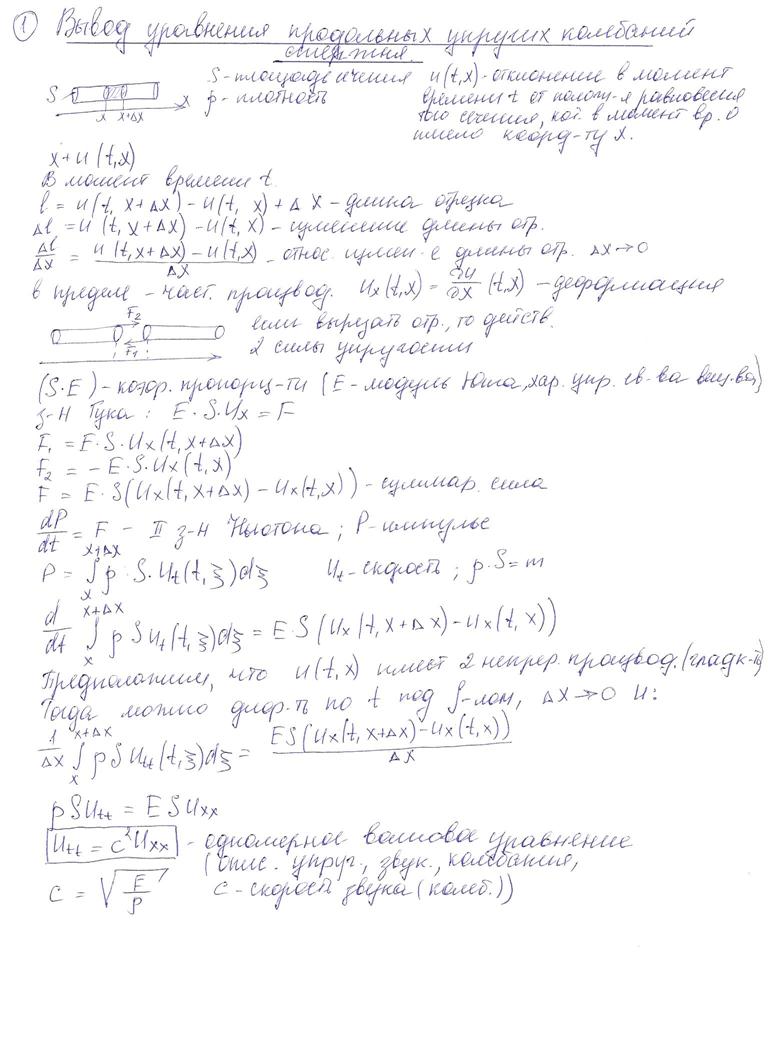 ① Вывод уравнения продольных упругих колебаний
стержня.
S - площадь сечения
ρ - плотность
u(t,x) - отклонение в момент
времени t от полож-я равновесия
того сечения, кот. в момент вр. 0
имело коорд-ту x.
S
x x+Δx x
x + u(t,x)
В момент времени t.
l = u(t, x+Δx) - u(t, x) + Δx - длина отрезка
Δl = u(t, x+Δx) - u(t, x) - изменение длины отр.
Δl/Δx = (u(t,x+Δx) - u(t,x))/Δx - относ. измен-е длины отр. Δx→0
в пределе - част. производ. Ux(t,x) = ∂u/∂x (t,x) - деформация
F2
F1
если вырезать отр., то действ.
2 силы упругости
(S·E) - коэф. пропорц-ти (E - модуль Юнга, хар. упр. св-ва вещ-ва)
з-н Гука: E·S·Ux = F
F1 = E·S·Ux(t, x+Δx)
F2 = -E·S·Ux(t, x)
F = E·S(Ux(t, x+Δx) - Ux(t,x)) - суммар. сила
dP/dt = F - II з-н Ньютона; P - импульс
P = ∫_x^{x+Δx} ρ·S·Ut(t,ξ)dξ Ut - скорость; ρ·S = m
d/dt ∫_x^{x+Δx} ρSUt(t,ξ)dξ = E·S(Ux(t, x+Δx) - Ux(t, x))
Предположим, что u(t,x) имеет 2 непрер. производ. (гладк-ть)
Тогда можно диф-ть по t под ∫-лом, Δx→0 и:
1/Δx ∫_x^{x+Δx} ρSUtt(t,ξ)dξ = ES(Ux(t, x+Δx) - Ux(t, x))/Δx
ρSUtt = ESUxx
Utt = c²Uxx - одномерное волновое уравнение
(опис. упруг., звук., колебания,
c = √(E/ρ) c - скорость звука (колеб.))